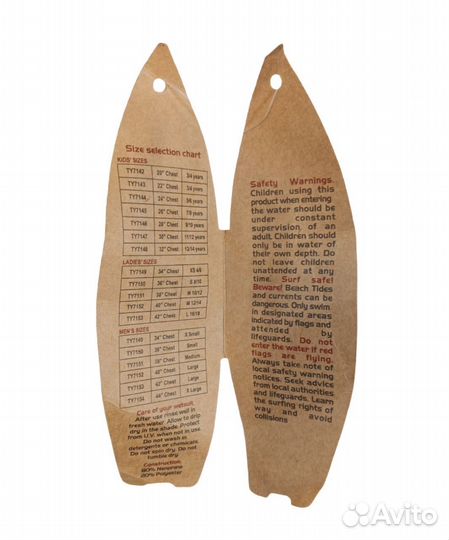 Size selection chart
KIDS' SIZES
TY7142 20" Chest 3/4 years
TY7143 22" Chest 5/6 years
TY7144 24" Chest years
TY7145 26" Chest 7/8 years
TY7146 28" Chest 9/10 years
TY7147 30" Chest 11/12 years
TY7148 32" Chest 13/14 years
LADIES' SIZES
TY7149 34" Chest XS 4/6
TY7150 36" Chest S 8/10
TY7151 38" Chest M 10/12
TY7152 40" Chest M 12/14
TY7153 42" Chest L 16/18
MEN'S SIZES
TY7149 34" Chest X Small
TY7150 36" Chest Small
TY7151 38" Chest Medium
TY7152 40" Chest Large
TY7153 42" Chest Large
TY7154 44" Chest X Large
Care of your wetsuit.
After use rinse well in
fresh water. Allow to drip
dry in the shade. Protect
from U.V. when not in use.
Do not wash in
detergents or chemicals.
Do not spin dry. Do not
tumble dry.
Construction:
80% Neoprene
20% Polyester
Safety Warnings.
Children using this
product when entering
the water should be
under constant
supervision, of an
adult. Children should
only be in water of
their own depth. Do
not leave children
unattended at any
time. Surf safe!
Beware! Beach Tides
and currents can be
dangerous. Only swim
in designated areas
indicated by flags and
attended by
lifeguards. Do not
enter the water if red
flags are flying.
Always take note of
local safety warning
notices. Seek advice
from local authorities
and lifeguards. Learn
the surfing rights of
way and avoid
collisions
Avito